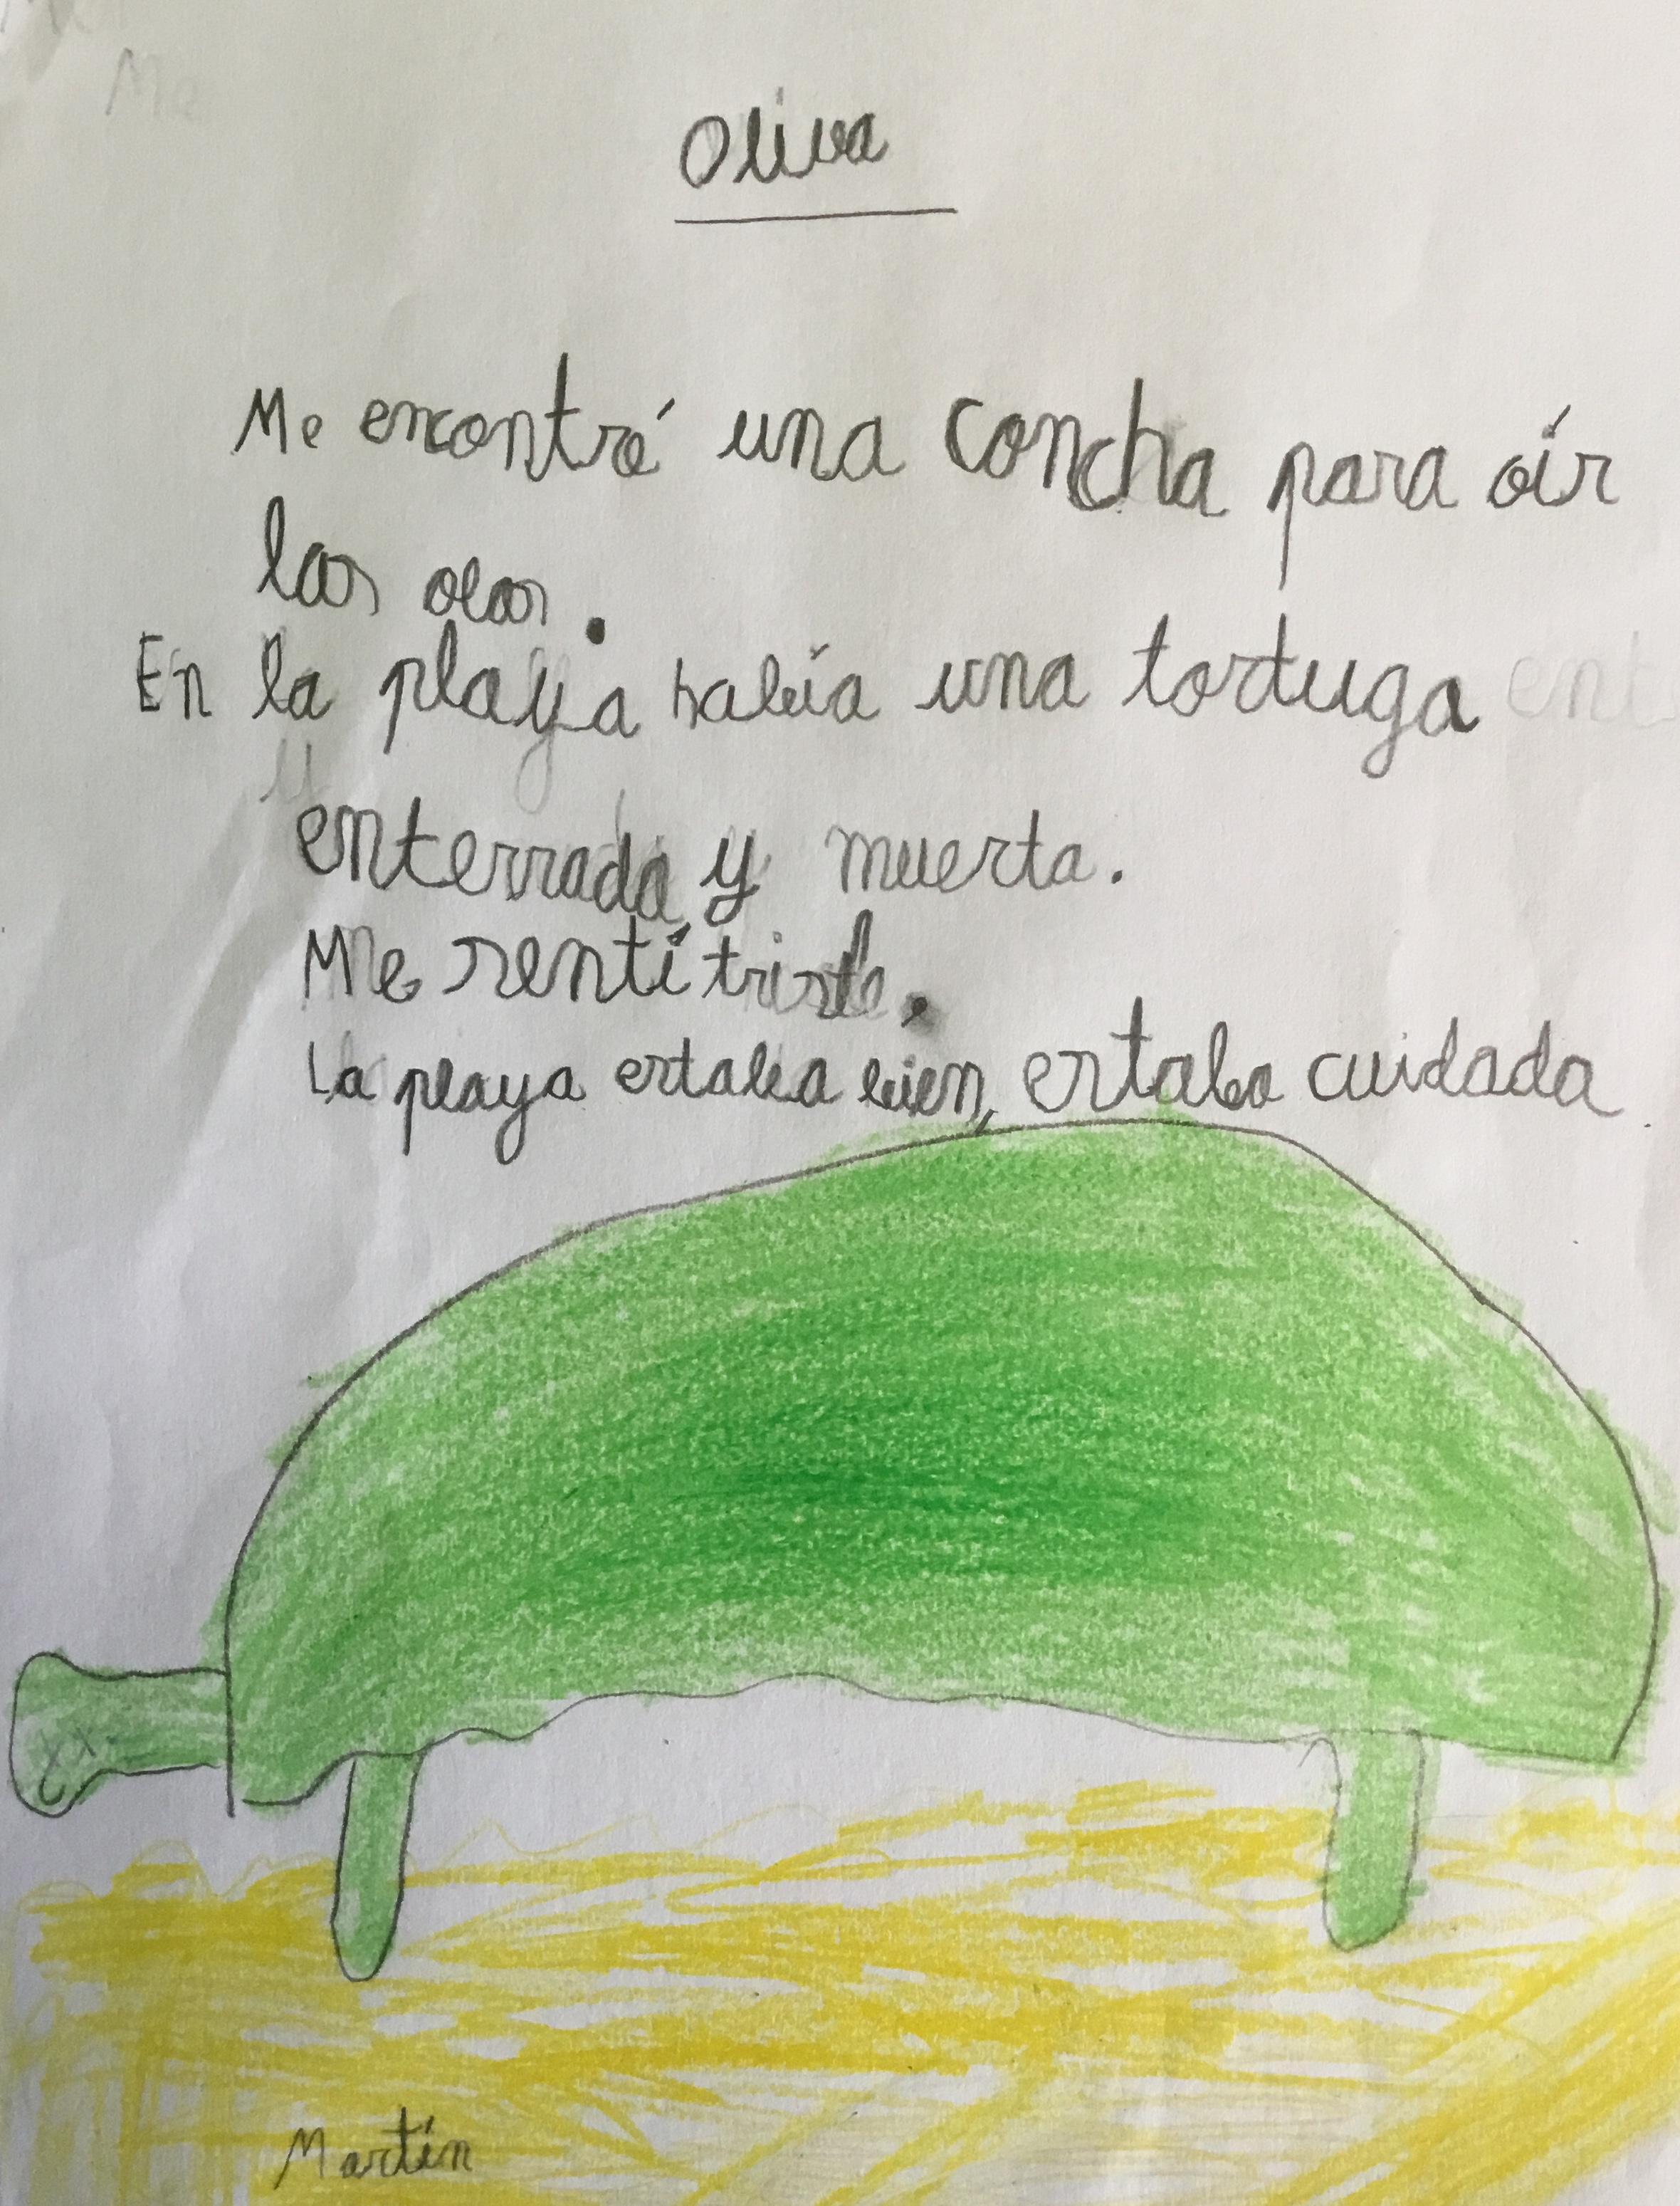 Me
Oliva
Me encontré una concha para oír
las olas.
En la playa había una tortuga ent
enterrada y muerta.
Me sentí triste.
La playa estaba bien, estaba cuidada
Martín